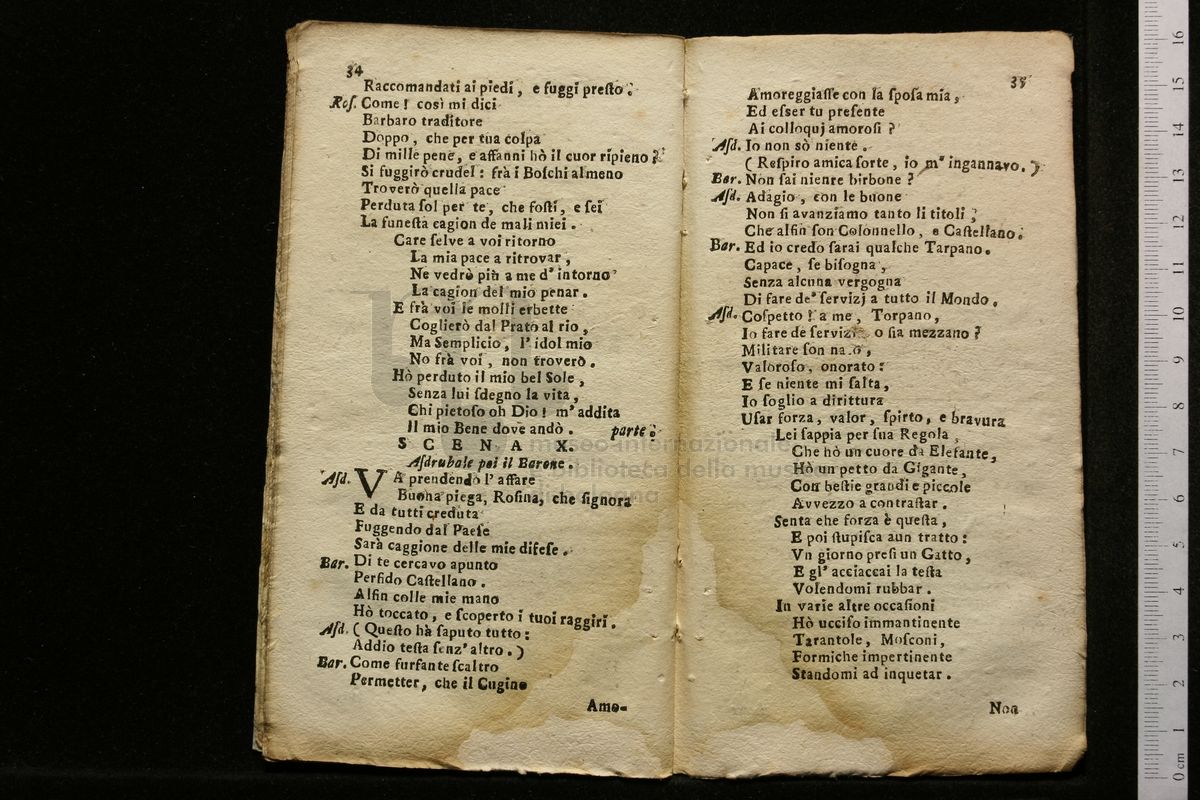 34
Raccomandati ai piedi, e fuggi preſto.
Roſ. Come! così mi dici
Barbaro traditore
Doppo, che per tua colpa
Di mille pene, e affanni hò il cuor ripieno?
Si fuggirò crudel: frà i Boſchi almeno
Troverò quella pace
Perduta ſol per te, che foſti, e ſei
La funeſta cagion de mali miei.
Care ſelve a voi ritorno
La mia pace a ritrovar,
Ne vedrò più a me d'intorno
La cagion del mio penar.
E frà voi le molli erbette
Coglierò dal Prato al rio,
Ma Semplicio, l'idol mio
No frà voi, non troverò.
Hò perduto il mio bel Sole,
Senza lui ſdegno la vita,
Chi pietoſo oh Dio! m'addita
Il mio Bene dove andò. parte.
SCENA X.
Aſdrubale poi il Barone.
Aſd. VA prendendo l'affare
Buona piega, Roſina, che ſignora
E da tutti creduta
Fuggendo dal Paeſe
Sarà caggione delle mie difeſe.
Bar. Di te cercavo apunto
Perfido Caſtellano.
Alfin colle mie mano
Hò toccato, e ſcoperto i tuoi raggiri.
Aſd. (Queſto hà ſaputo tutto:
Addio teſta ſenz'altro.)
Bar. Come furfante ſcaltro
Permetter, che il Cugino
Amo-
35
Amoreggiaſſe con la ſpoſa mia,
Ed eſſer tu preſente
Ai colloquj amoroſi?
Aſd. Io non sò niente.
(Reſpiro amica ſorte, io m'ingannavo.)
Bar. Non ſai nienre birbone?
Aſd. Adagio, con le buone
Non ſi avanziamo tanto li titoli;
Che alfin ſon Colonnello, e Caſtellano.
Bar. Ed io credo ſarai qualche Tarpano.
Capace, ſe biſogna,
Senza alcuna vergogna
Di fare de' ſervizj a tutto il Mondo.
Aſd. Coſpetto! a me, Torpano,
Io fare de ſervizj o ſia mezzano?
Militare ſon nato,
Valoroſo, onorato:
E ſe niente mi ſalta,
Io ſoglio a dirittura
Uſar forza, valor, ſpirto, e bravura
Lei ſappia per ſua Regola,
Che hò un cuore da Elefante,
Hò un petto da Gigante,
Con beſtie grandi e piccole
Avvezzo a contraſtar.
Senta ehe forza è queſta,
E poi ſtupiſca aun tratto:
Vn giorno preſi un Gatto,
E gl' acciaccai la teſta
Volendomi rubbar.
In varie altre occaſioni
Hò ucciſo immantinente
Tarantole, Moſconi,
Formiche impertinente
Standomi ad inquetar.
Non
museo internazionale
biblioteca della musica